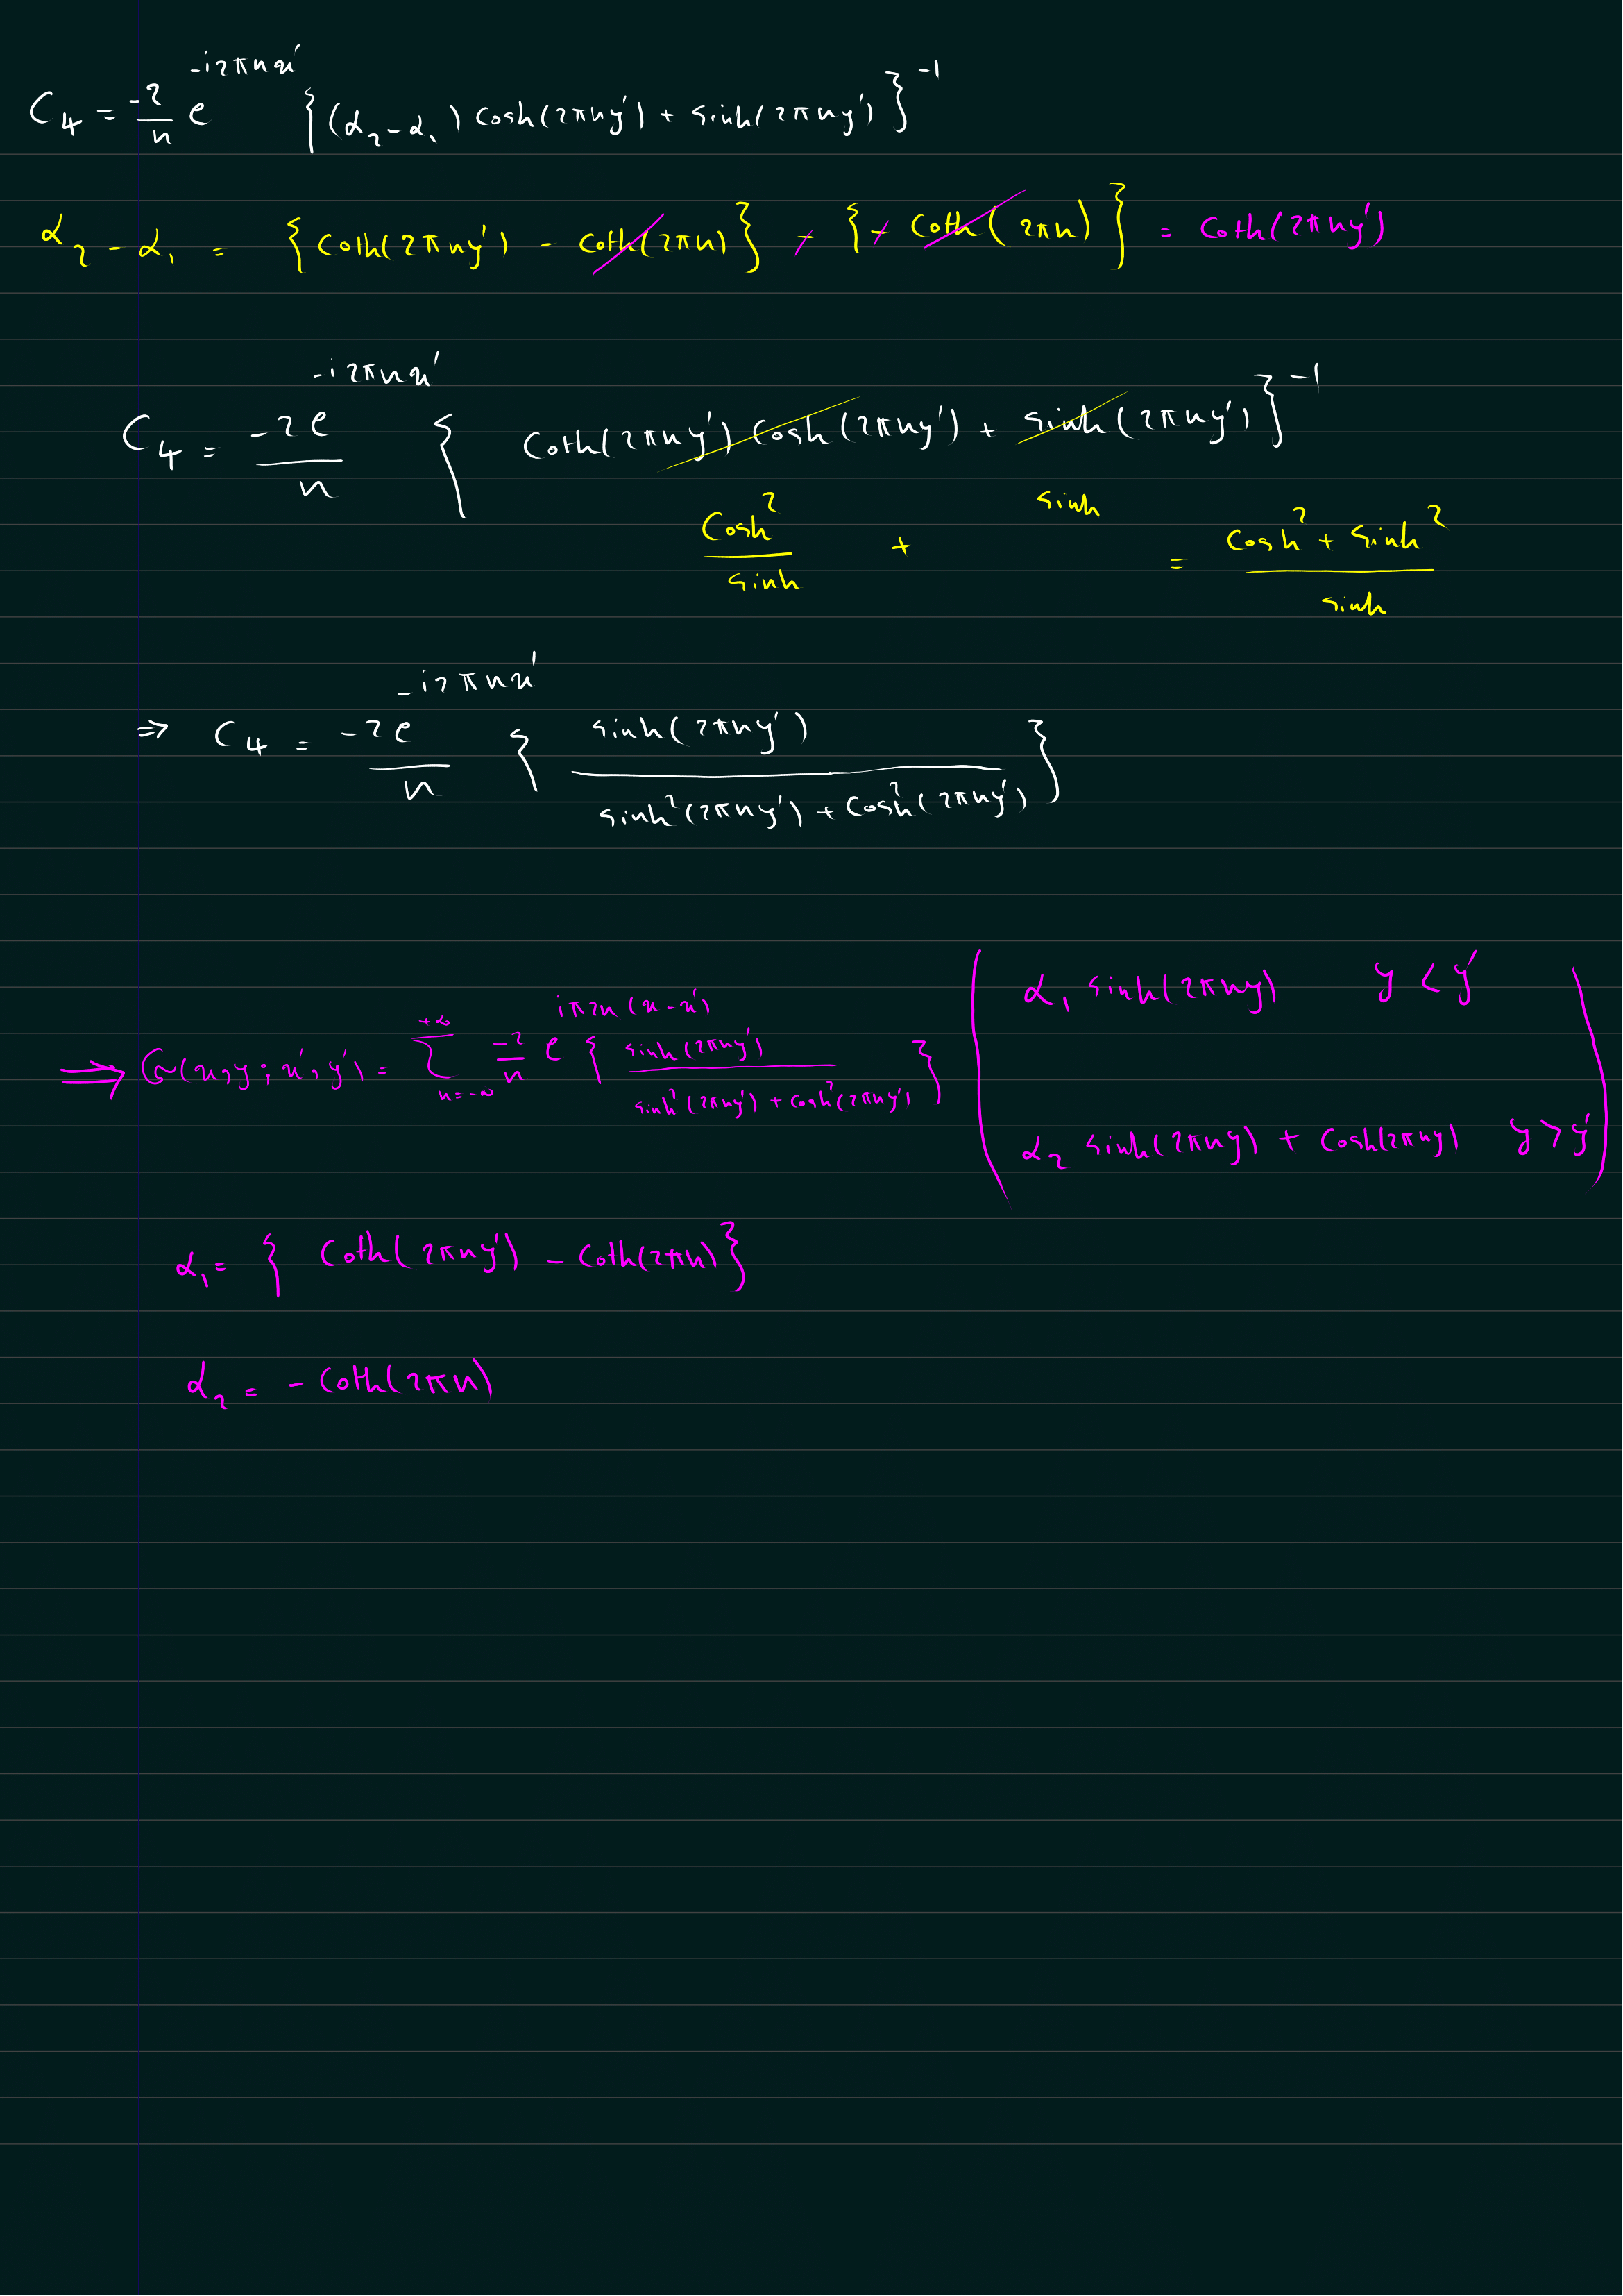 C₄ = -2/n e^{-i2πnx'} {(α₂ - α₁) cosh(2πny') + sinh(2πny')}^{-1}
α₂ - α₁ = {coth(2πny') - coth(2πn)} - {- coth(2πn)} = coth(2πny')
C₄ = -2e^{-i2πnx'}/n {coth(2πny') cosh(2πny') + sinh(2πny')}^{-1}
cosh²/sinh + sinh = cosh² + sinh²/sinh
⇒ C₄ = -2e^{-i2πnx'}/n { sinh(2πny') / sinh²(2πny') + cosh²(2πny') }
⇒ G(x,y; x',y') = Σ_{n=-∞}^{+∞} -2/n e^{iπ2n(x-x')} { sinh(2πny') / sinh²(2πny') + cosh²(2πny') } ( α₁ sinh(2πny) y < y'
α₂ sinh(2πny) + cosh(2πny) y > y' )
α₁ = { coth(2πny') - coth(2πn) }
α₂ = - coth(2πn)